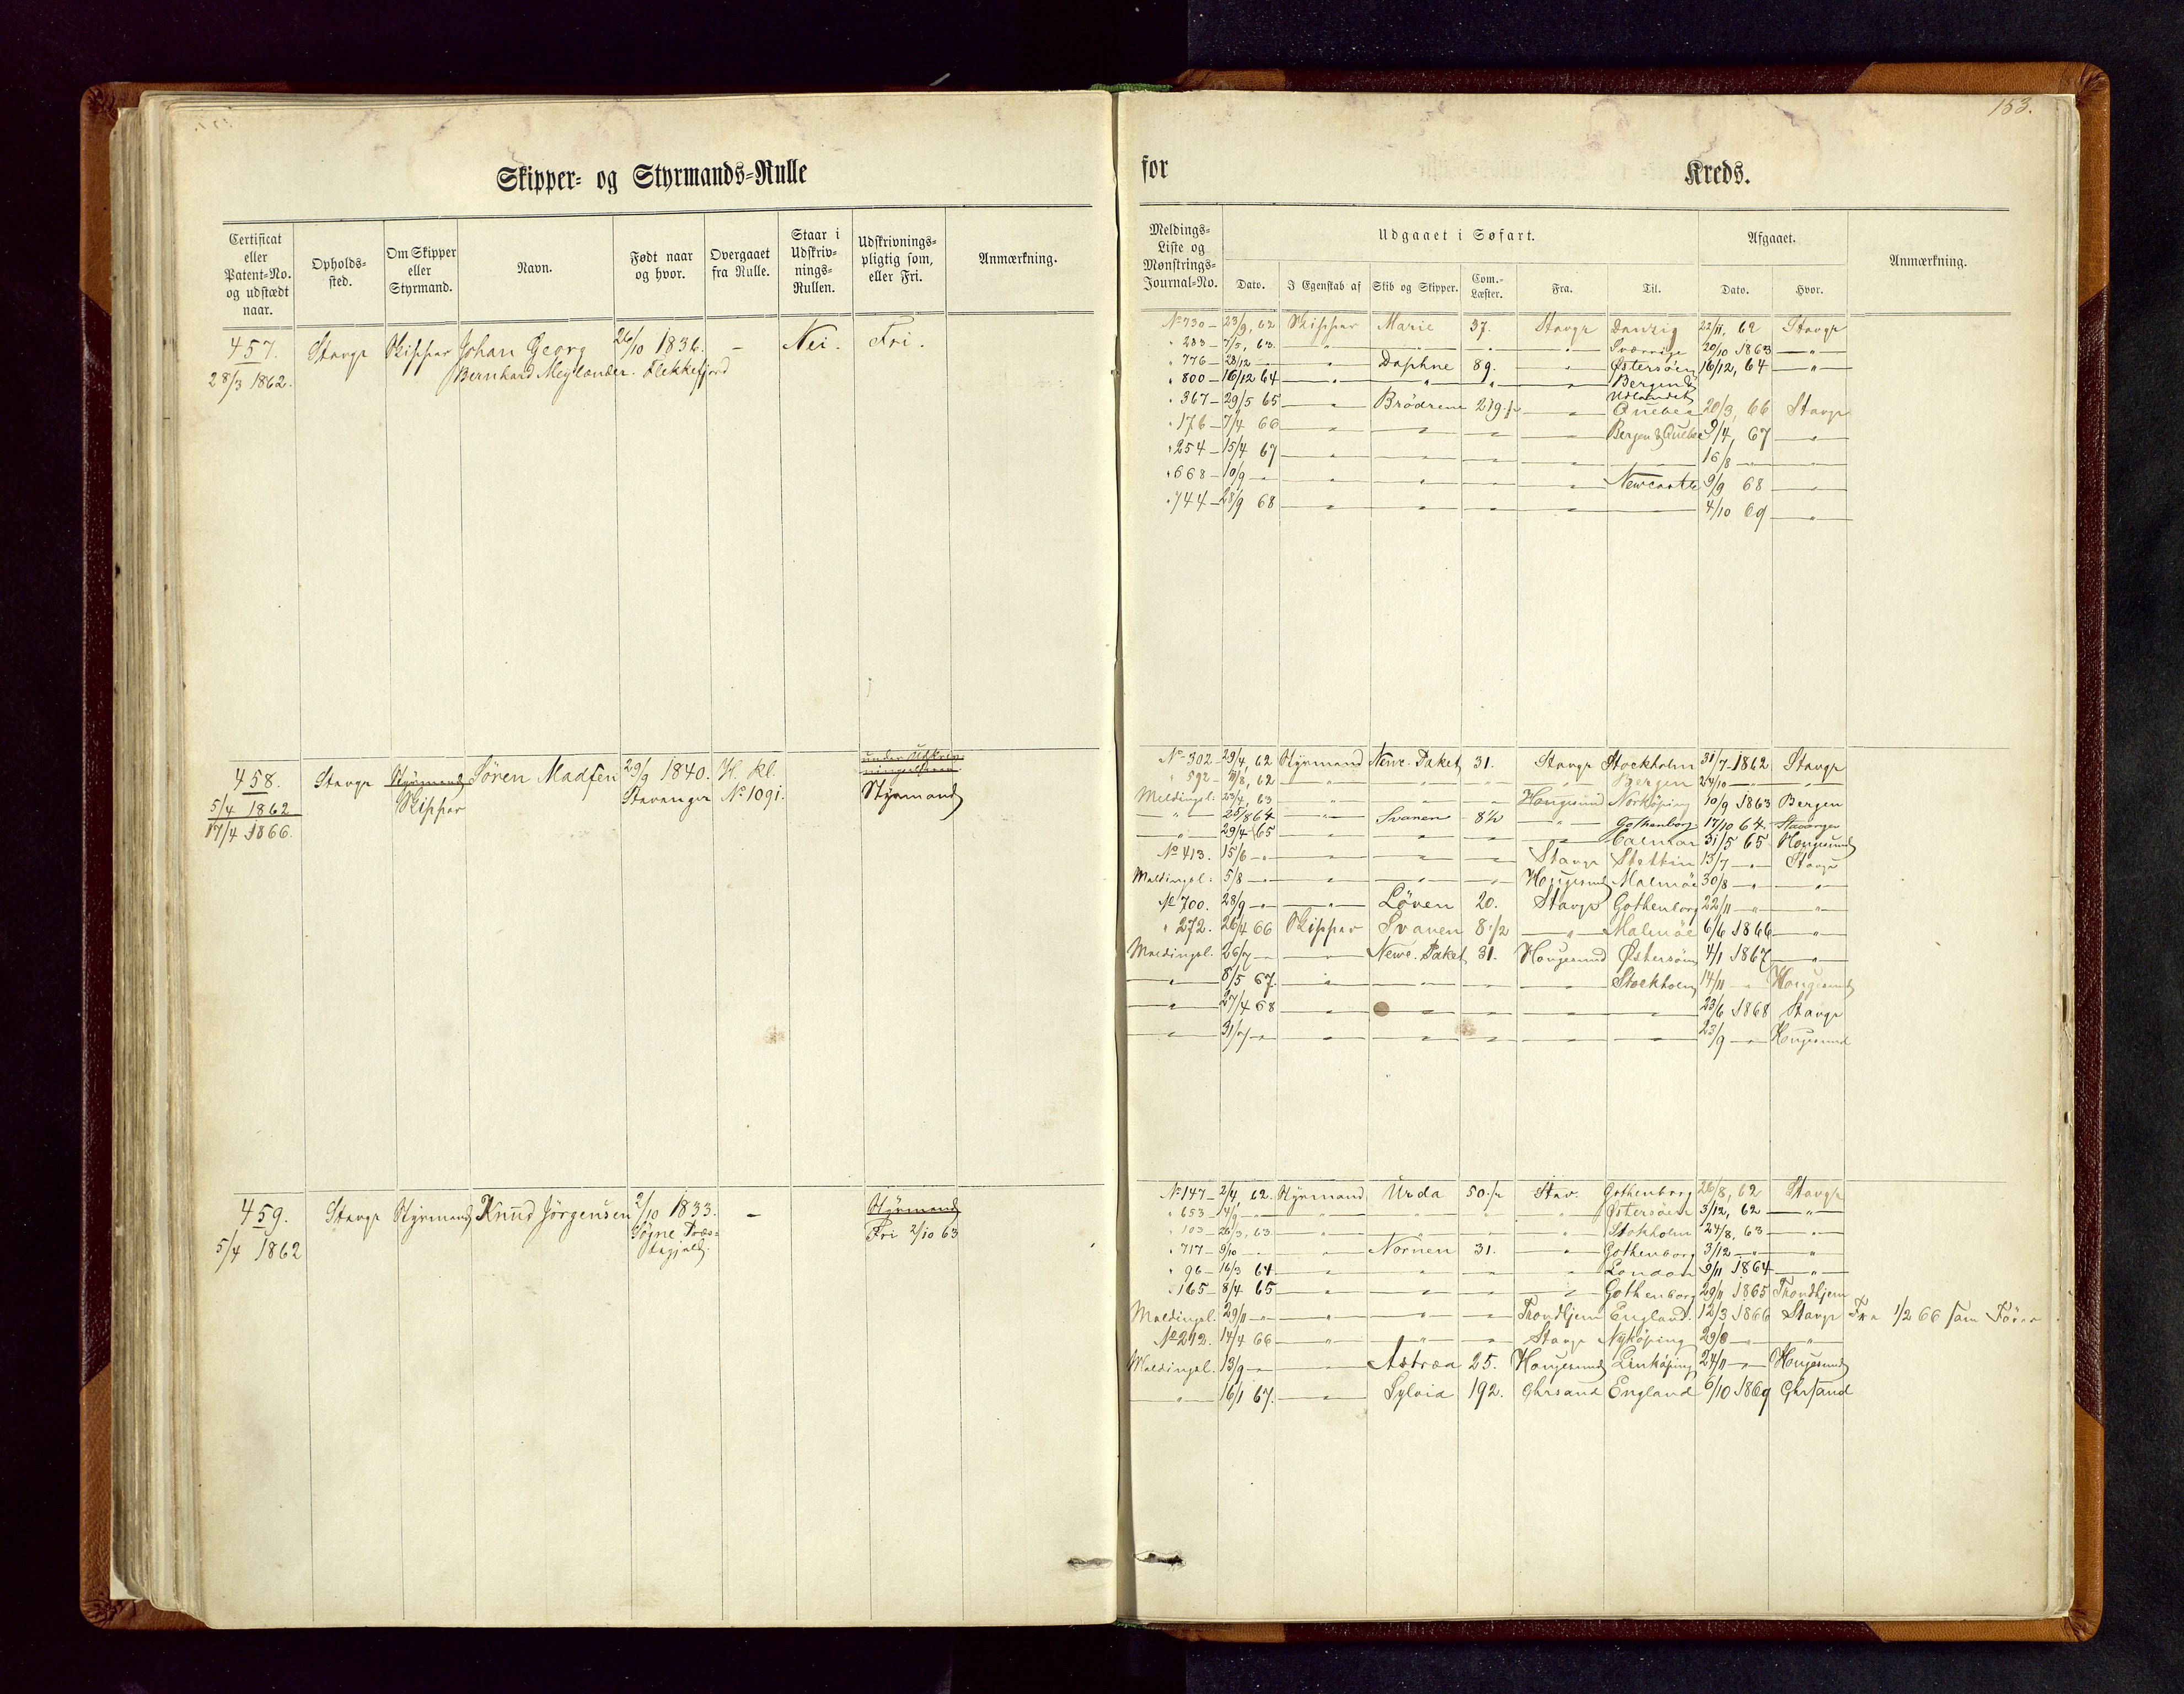 153.
Skipper- og Styrmands-Rulle
for Kreds.
Certificat eller Patent-No. og udstædt naar. | Opholds-sted. | Om Skipper eller Styrmand. | Navn. | Født naar og hvor. | Overgaaet fra Rulle. | Staar i Udskriv-nings-Rullen. | Udskrivnings-pligtig som, eller Fri. | Anmærkning.
Meldings-Liste og Mønstrings-Journal-No. | Udgaaet i Søfart. | Afgaaet. | Anmærkning.
Dato. | I Egenskab af | Skib og Skipper. | Com.-Læster. | Fra. | Til. | Dato. | Hvor.
457. Stavgr Skipper Johan Georg 26/10 1836. — Nei. Fri.
28/3 1862. Bernhard Meylander. Flekkefjord
No 730 — 23/9, 62 Skipper Marie 37. Stavgr Danzig 22/11, 62 Stavgr
" 283 — 7/5, 63. " " " " Sverrige 20/10 1863 — " —
" 776 — 28/12 — " — " Daphne 89. " Østersöen 16/12, 64 — " —
" 800 — 16/12 64 — " — " " " Bergen &
Udlandet
" 367 — 29/5 65 — " — Brödrene 219 " Quebec 20/3, 66 Stavgr
" 176 — 7/4 66 — " — " " " Bergen & Quebec 9/4, 67 — " —
" 254 — 15/4 67 — " — " " " — 16/8 — " — " —
" 668 — 10/9 — " — " — " " " Newcastle 9/9 68 — " —
" 744 — 28/9 68 — " — " " " — 4/10 69 — " —
458. Stavgr Styrmand Sören Madsen 29/9 1840. H. kl. under Udskriv-
5/4 1862 Skipper Stavanger No 1091. Styrmand
17/4 1866.
No 302 29/4, 62 Styrmand Newc. Paket 31. Stavgr Stockholm 31/7 1862 Stavgr
" 592 — 11/8, 62 — " — " " — " — Bergen 24/10 — " — " —
Meldingsl. 23/4, 63 " " " Hougesund Norköping 10/9 1863 Bergen
— " — 25/8 64 — " — Svanen 8 1/2 — " — Gothenborg 17/10 64. Stavanger
— " — 29/4 65 — " — " " — " — Calmar 31/5 65 Hougesund
No 413. 15/6 — " — " — " " Stavgr Stettin 13/7 — " — Stavgr
Meldingsl. 5/8 — " — " — " " Hougesund Malmöe 30/8 — " — " —
No 700. 28/9 — " — " — Löven 20. Stavgr Gothenborg 22/11 — " — " —
" 272. 26/4 66 Skipper Svanen 8 1/2 — " — Malmöe 6/6 1866 — " —
Meldingsl. 26/7 — " — " — Newc. Paket 31. Hougesund Østersöen 4/1 1867 — " —
— " — 8/5 67. — " — " " " Stockholm 14/11 — " — Hougesund
— " — 27/4 68 — " — " " " — " — 23/6 1868 Stavgr
— " — 31/7 — " — " — " " " — " — 23/9 — " — Hougesund
459. Stavgr Styrmand Knud Jörgensen 2/10 1833. — Styrmand
5/4 1862 Sögne Præs- Fri 2/10 63
tegjeld.
No 147 — 2/4, 62. Styrmand Urda 50 Stav. Gothenborg 26/8, 62 Stavgr
" 653 — 4/9 — " — " " " Østersöen 3/12, 62 — " —
" 103 — 26/3, 63 " " " " Stokholm 24/8, 63 — " —
" 717 — 9/10 — " — " Nornen 31. — " — Gothenborg 3/12 — " — " —
" 96 — 16/3 64. — " — " " " London 9/11 1864 — " —
" 165 — 8/4 65 — " — " " " Gothenborg 29/11 1865 Trondhjem
Meldingsl. 29/11 — " — " — " " Trondhjem England. 12/3 1866 Stavgr Fra 1/2 66 som Förer
No 212. 14/4 66 — " — " " Stavgr Nyköping 29/8 — " — " —
Meldingsl. 13/9 — " — " — Astræa 25. Hougesund Linköping 24/11 — " — Hougesund
— " — 16/1 67. — " — Sylvia 192. Chrsand England 6/10 1869 Chrsand